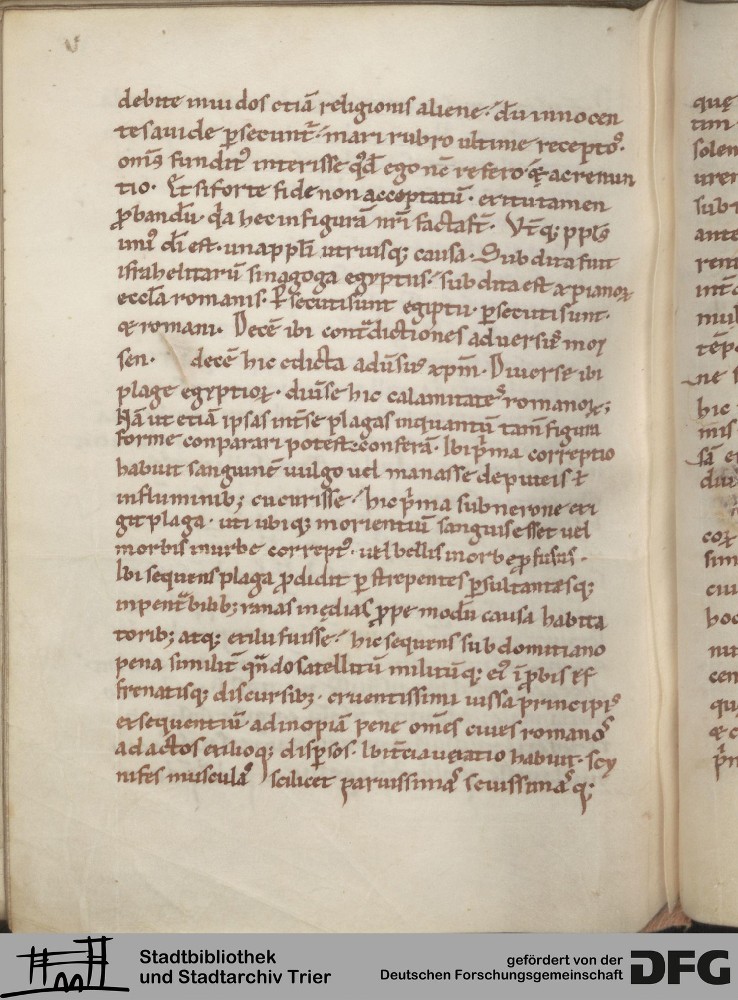 debite inui dos etiā religionis aliene. dū innocen
tes auide ꝑsecunt̄. mari rubro ultime receptos.
om̄s fundit᾽ interisse qd̄ ego nē refero ęq̄ ac renun
tio. Et si forte fide non acceptatū. erit tamen
ꝓbandū. q̄a hec in figurā nr̄i facta st̄. Vt̄q; ppl̄s
uni᾽ dī est. una ppl̄i utriusq; causa. Subdita fuit
israhelitarū sinagoga egyptiis. subdita est xp̄ianoꝝ
eccl̄a romanis. ꝑsecuti sunt egiptii. ꝑsecuti sunt
& romani. Decē ibi cont̄dictiones aduersū moy
sen. decē hic edicta adūsus xp̄m. Diuerse ibi
plage egyptioꝝ. diūse hic calamitates romanoꝝ;
Nā ut etiā ipsas int̄ se plagas inquantū tam̄ figura
forme conparari potest conferā. Ibi p̄ma correptio
habuit sanguinē uulgo uel manasse de puteis ł
in fluminib; cucurisse. hic p̄ma sub nerone exi
git plaga. uti ubiq; morientiū sanguis esset uel
morbis in urbe corrept᾽. uel bellis in orbe ꝓfusus.
Ibi sequens plaga ꝓdidit ꝑstrepentes ꝑsultantesq;
in penet̄bilib; ranas inędias ꝓpe modū causa habita
torib; atq; exilii fuisse. hic sequens sub domitiano
pena similit̄ qn̄do satellitū militūq; ei᾽ īprobis &f
frenatisq; discursib;. cruentissimi iussa principis
exsequentiū ad inopiā pene om̄es ciues romanos
adactos exilioq; disꝑsos. Ibi t̄cia uexatio habuit. scy
nifes musculas scilicet paruissimas seuissimasq;
Stadtbibliothek
und Stadtarchiv Trier
gefördert von der
Deutschen Forschungsgemeinschaft
DFG